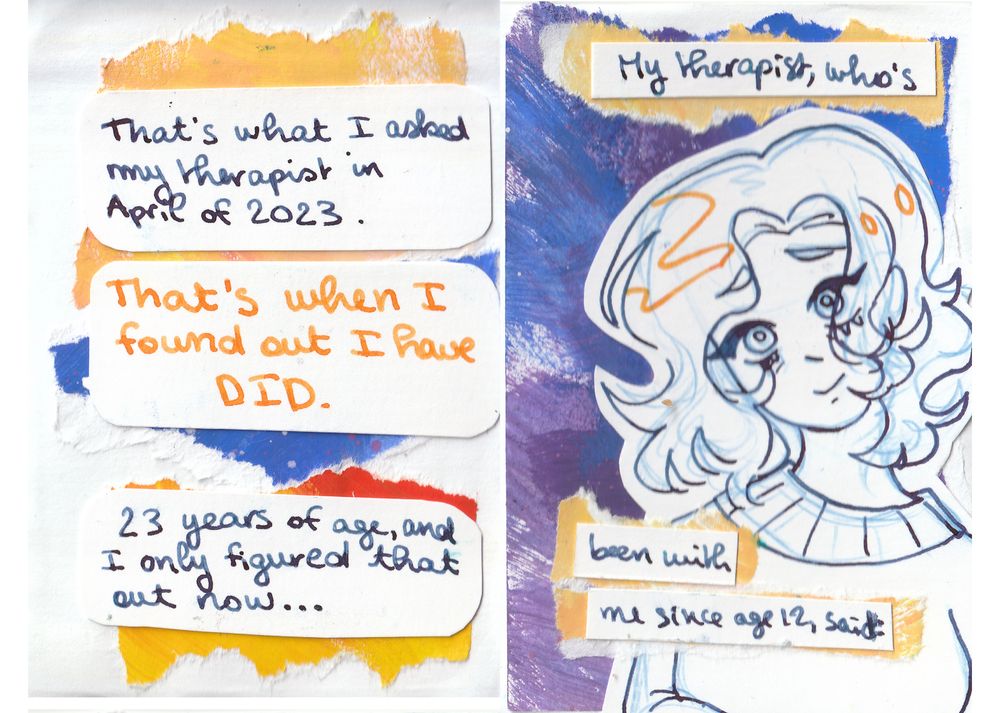 That's what I asked
my therapist in
April of 2023.
That's when I
found out I have
DID.
23 years of age, and
I only figured that
out now...
My therapist, who's
been with
me since age 12, said: